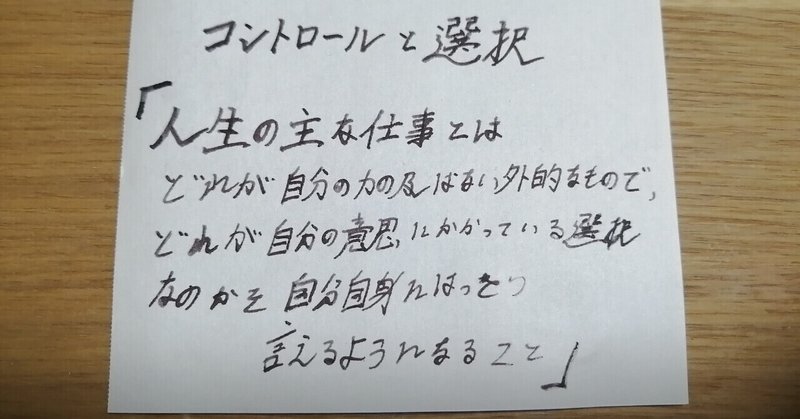 コントロールと選択
「人生の主な仕事とは
どれが自分の力の及ばない外的なもので、
どれが自分の意思にかかっている選択
なのかを自分自身にはっきり
言えるようになること」